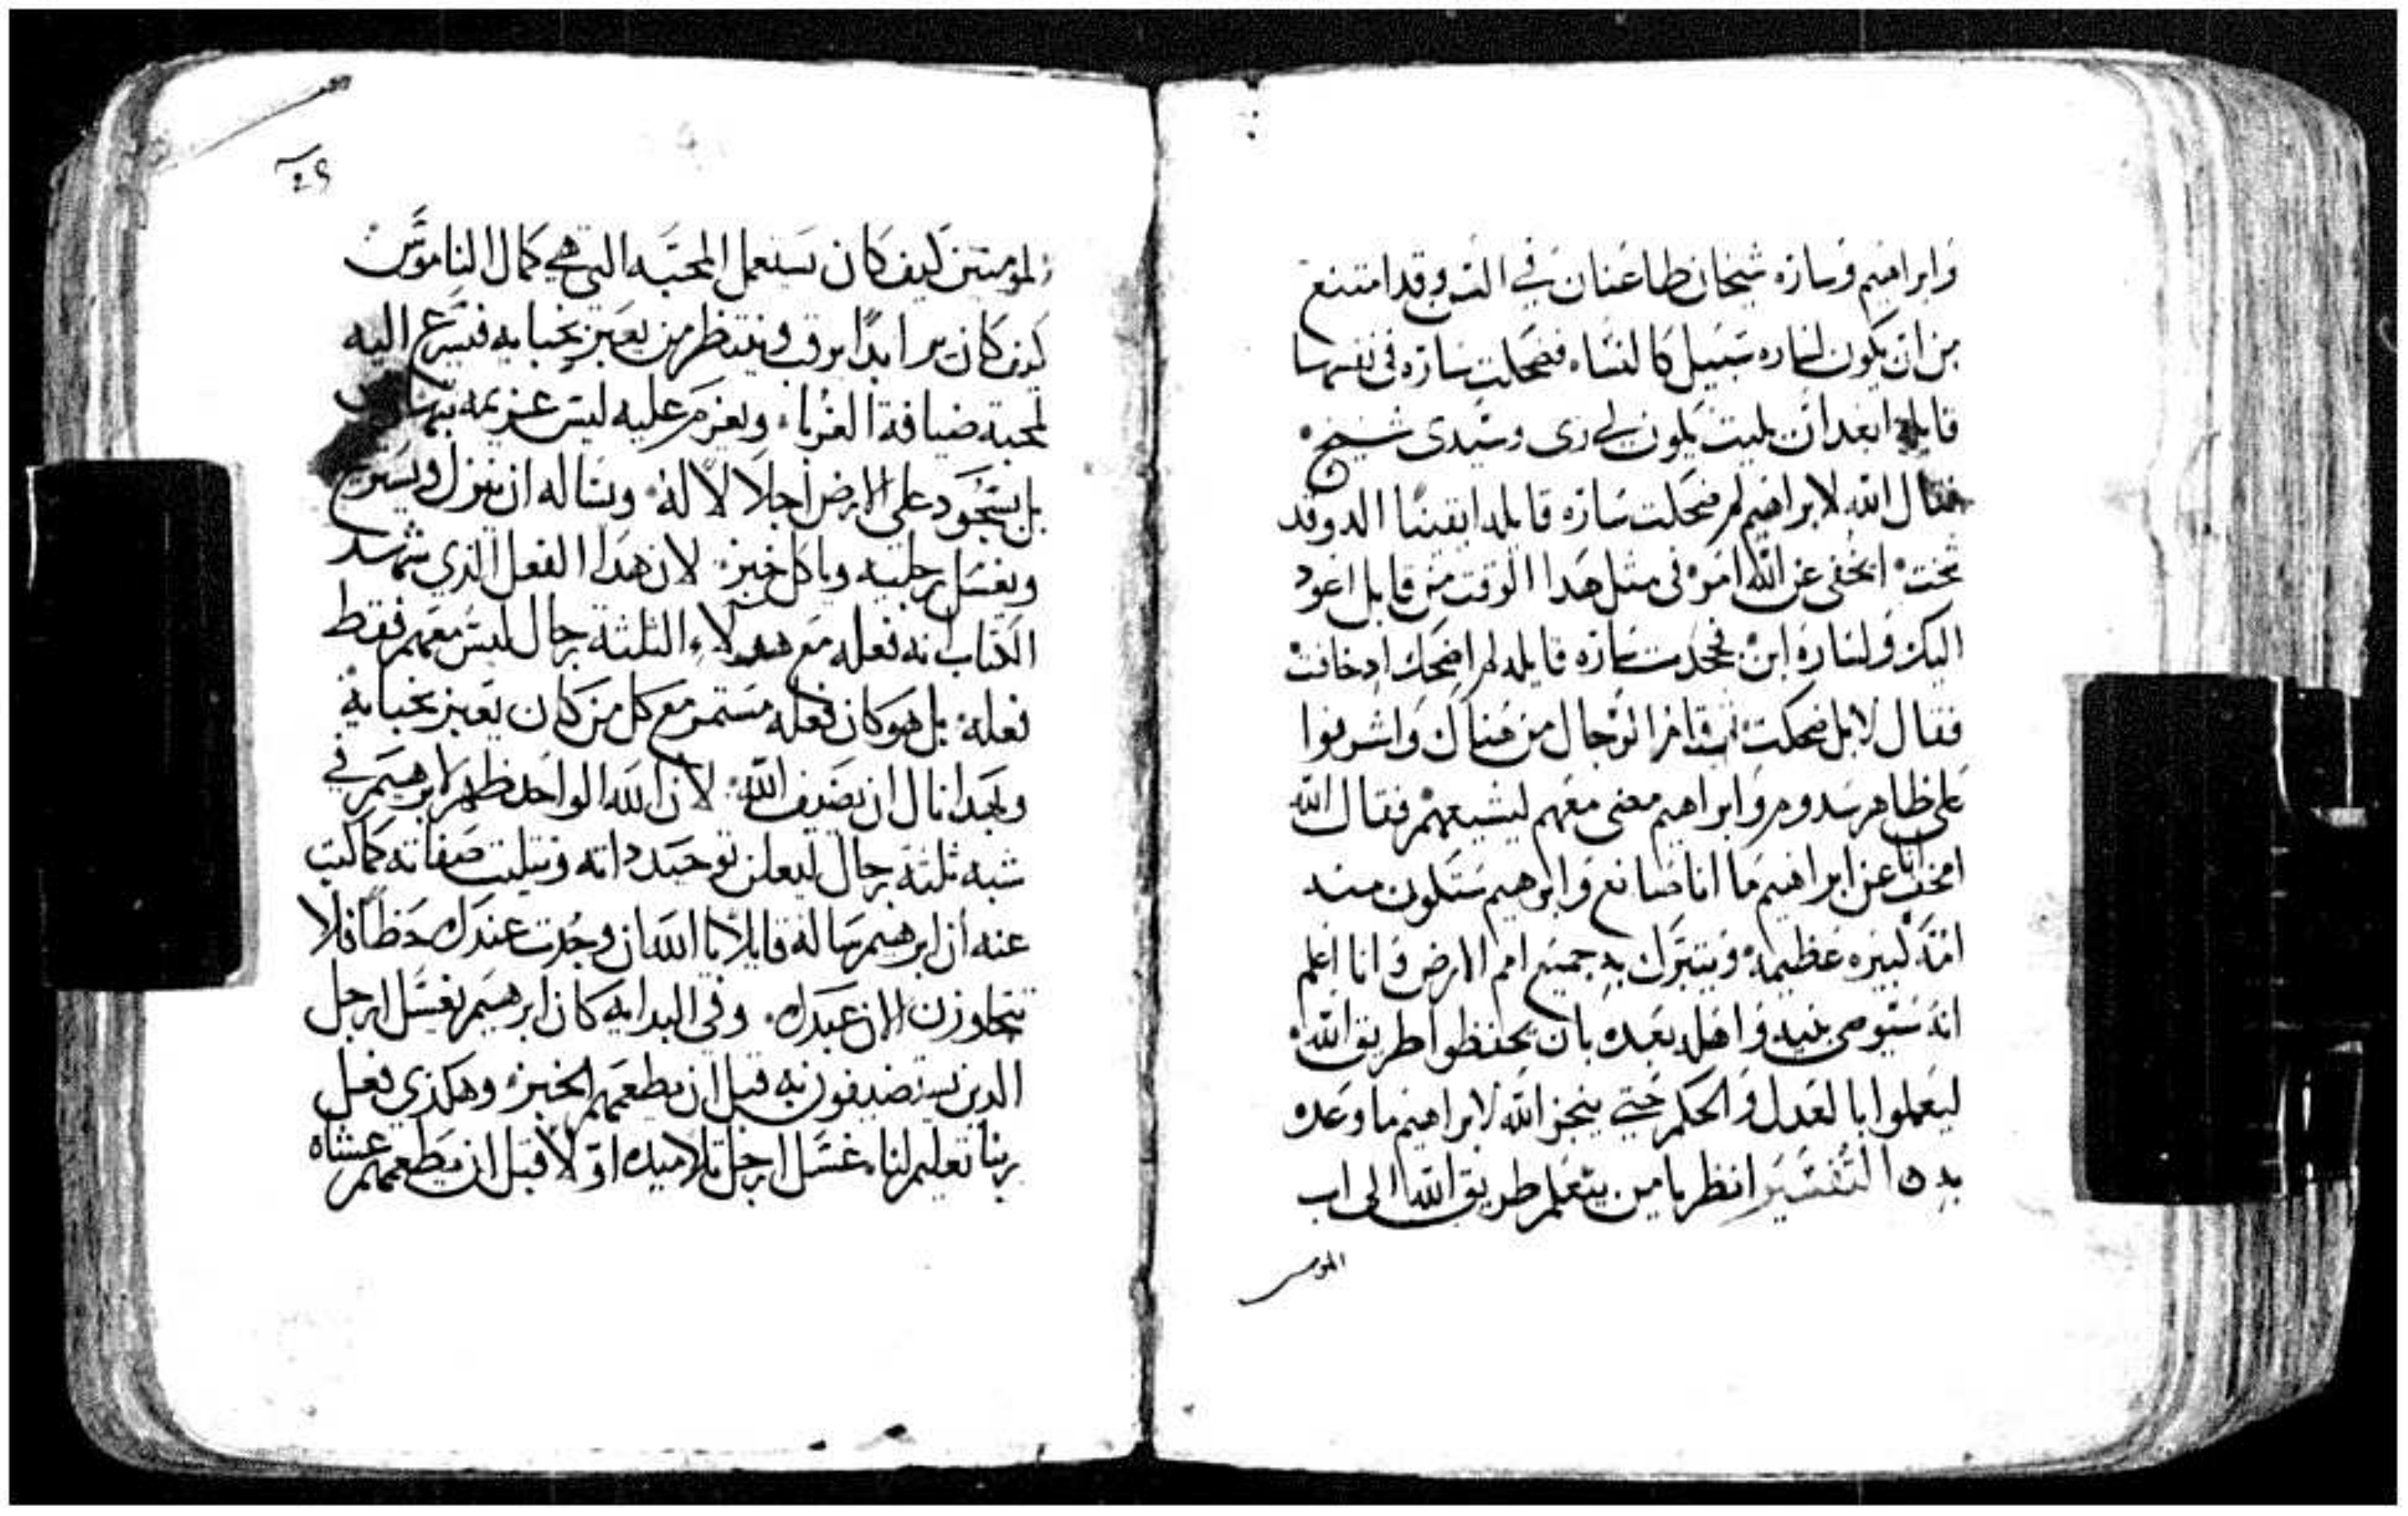 وابراهيم وساره شيخان طاعنان في السن وقد امتنع
من ان يكون لساره سبيل كالنساء فضحكت ساره في نفسها
قايلة ابعد ان بليت يكون لي ري وسيدى شيخ
فقال الله لابراهيم لم ضحكت ساره قايله ايقينا الد وقد
شخت ايخفي عن الله امر في مثل هدا الوقت من قابل اعود
اليك ولساره ابن فجحدت ساره قايله لم اضحك اد خافت
فقال لا بل ضحكت ثم قام الرجال من هناك واشرفوا
على ظاهر سدوم وابراهيم مضى معهم ليشيعهم فقال الله
امخف انا عن ابراهيم ما انا صانع وابرهيم ستكون منه
امة كبيره عظيمة ويتبرك به جميع امم الارض وانا اعلم
انه سيوصى بنيه واهله بعده بان يحفظوا طريق الله
ليعملوا بالعدل والحكم حتي ينجز الله لابراهيم ما وعده
به ۞ التفسير انظر يا من يتعلم طريق الله الى اب
المومنين
٤٩
المومنين كيف كان يستعمل المحبه التي هي كمال الناموس
كيف كان برا ابدا يرقب وينتظر من يعبر بخبايه فيسرع اليه
لمحبة ضيافة الغربا ويعزم عليه ليس عزيمه بتهاون
بل يسجود على الارض اجلالا له وبساله ان ينزل ويستريح
ويغسل رجليه وياكل خبز لان هدا الفعل الذي شهد
الكتاب انه فعله مع هولاء الثلثة رجال ليس معهم فقط
فعله بل هو كان فعله مستمر مع كل من كان يعبر بخبايه
وبهدا نال ان يضيف الله لان الله الواحد ظهر لابرهيم في
شبه ثلثة رجال ليعلن توحيد داته وتثليت صفاته كما كتب
عنه ان ابرهيم ساله قايلا يا الله ان وجدت عندك حظا فلا
تتجاوزن الان عبدك وفي البدايه كان ابرهيم يغسل ارجل
الدين يستضيفون به قبل ان يطعمهم الخبز وهكذي فعل
ربنا تعليم لنا غسل ارجل تلاميده اولا قبل ان يطعمهم عشاه